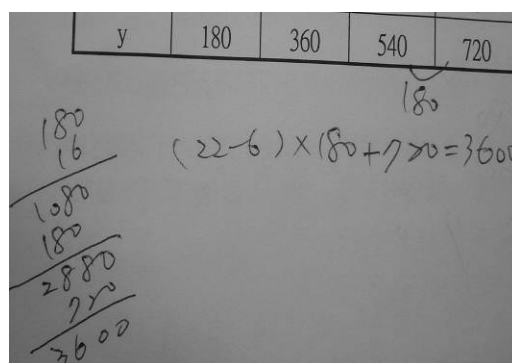 y 180 360 540 720
180
(22-6)×180+720=3600
180
16
1080
180
2880
720
3600